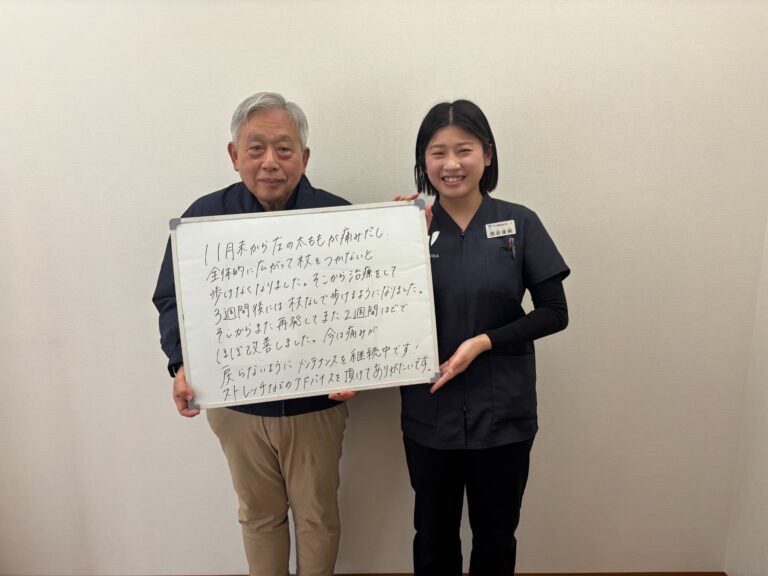 11月末から左の太ももが痛みだし、
全体的に広がって杖をつかないと
歩けなくなりました。そこから治療をして
3週間後には杖なしで歩けるようになりました。
そこからまた再発してまた2週間ほどで
ほぼ改善しました。今は痛みが
戻らないようにメンテナンスを継続中です!
ストレッチなどのアドバイスを頂けてありがたいです。